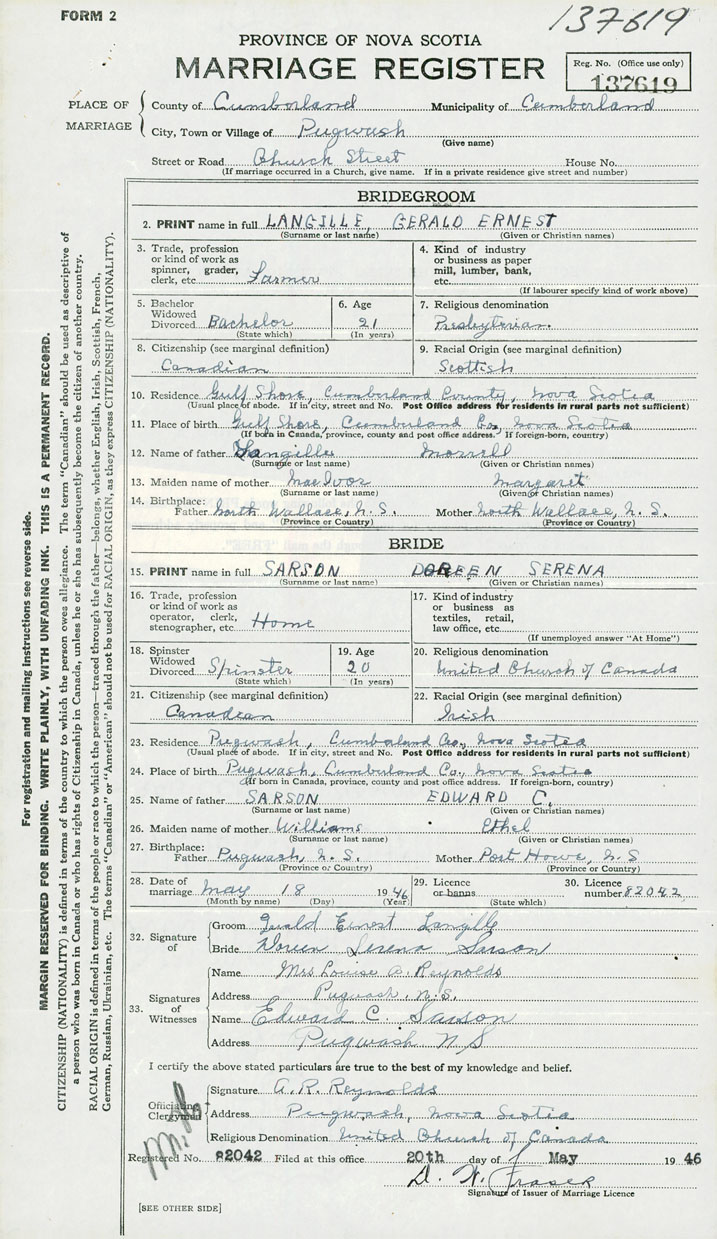 FORM 2
137619
PROVINCE OF NOVA SCOTIA
MARRIAGE REGISTER
Reg. No. (Office use only)
137619
PLACE OF MARRIAGE
County of Cumberland Municipality of Cumberland
City, Town or Village of Pugwash
(Give name)
Street or Road Church Street House No.
(If marriage occurred in a Church, give name. If in a private residence give street and number)
BRIDEGROOM
2. PRINT name in full LANGILLE, GERALD ERNEST
(Surname or last name) (Given or Christian names)
3. Trade, profession or kind of work as spinner, grader, clerk, etc. Farmer
4. Kind of industry or business as paper mill, lumber, bank, etc.
(If labourer specify kind of work above)
5. Bachelor Widowed Divorced Bachelor
(State which)
6. Age 21
(In years)
7. Religious denomination
Presbyterian.
8. Citizenship (see marginal definition)
Canadian
9. Racial Origin (see marginal definition)
Scottish
10. Residence Gulf Shore, Cumberland County, Nova Scotia
(Usual place of abode. If in city, street and No. Post Office address for residents in rural parts not sufficient)
11. Place of birth Gulf Shore, Cumberland Co., Nova Scotia
(If born in Canada, province, county and post office address. If foreign-born, country)
12. Name of father Langille Morrell
(Surname or last name) (Given or Christian names)
13. Maiden name of mother MacIvor Margaret
(Surname or last name) (Given or Christian names)
14. Birthplace:
Father North Wallace, N. S. Mother North Wallace, N. S.
(Province or Country) (Province or Country)
BRIDE
15. PRINT name in full SARSON DOREEN SERENA
(Surname or last name) (Given or Christian names)
16. Trade, profession or kind of work as operator, clerk, stenographer, etc. Home
17. Kind of industry or business as textiles, retail, law office, etc.
(If unemployed answer "At Home")
18. Spinster Widowed Divorced Spinster
(State which)
19. Age 20
(In years)
20. Religious denomination
United Church of Canada
21. Citizenship (see marginal definition)
Canadian
22. Racial Origin (see marginal definition)
Irish
23. Residence Pugwash, Cumberland Co., Nova Scotia
(Usual place of abode. If in city, street and No. Post Office address for residents in rural parts not sufficient)
24. Place of birth Pugwash, Cumberland Co., Nova Scotia
(If born in Canada, province, county and post office address. If foreign-born, country)
25. Name of father SARSON EDWARD C.
(Surname or last name) (Given or Christian names)
26. Maiden name of mother Williams Ethel
(Surname or last name) (Given or Christian names)
27. Birthplace:
Father Pugwash, N. S. Mother Port Howe, N. S
(Province or Country) (Province or Country)
28. Date of marriage May 18 1946
(Month by name) (Day) (Year)
29. Licence or banns
(State which)
30. Licence number 82042
32. Signature of
Groom Gerald Ernest Langille
Bride Doreen Serena Sarson
33. Signatures of Witnesses
Name Mrs Louise A. Reynolds
Address Pugwash, N.S.
Name Edward C. Sarson
Address Pugwash N S
I certify the above stated particulars are true to the best of my knowledge and belief.
Officiating Clergyman
Signature A. R. Reynolds
Address Pugwash, Nova Scotia
Religious Denomination United Church of Canada
Registered No. 82042 Filed at this office 20th day of May 1946
D. W. Fraser
Signature of Issuer of Marriage Licence
[SEE OTHER SIDE]
For registration and mailing instructions see reverse side.
MARGIN RESERVED FOR BINDING. WRITE PLAINLY, WITH UNFADING INK. THIS IS A PERMANENT RECORD.
CITIZENSHIP (NATIONALITY) is defined in terms of the country to which the person owes allegiance. The term "Canadian" should be used as descriptive of
a person who was born in Canada or who has rights of Citizenship in Canada, unless he or she has subsequently become the citizen of another country.
RACIAL ORIGIN is defined in terms of the people or race to which the person—traced through the father—belongs, whether English, Irish, Scottish, French,
German, Russian, Ukrainian, etc. The terms "Canadian" or "American" should not be used for RACIAL ORIGIN, as they express CITIZENSHIP (NATIONALITY).